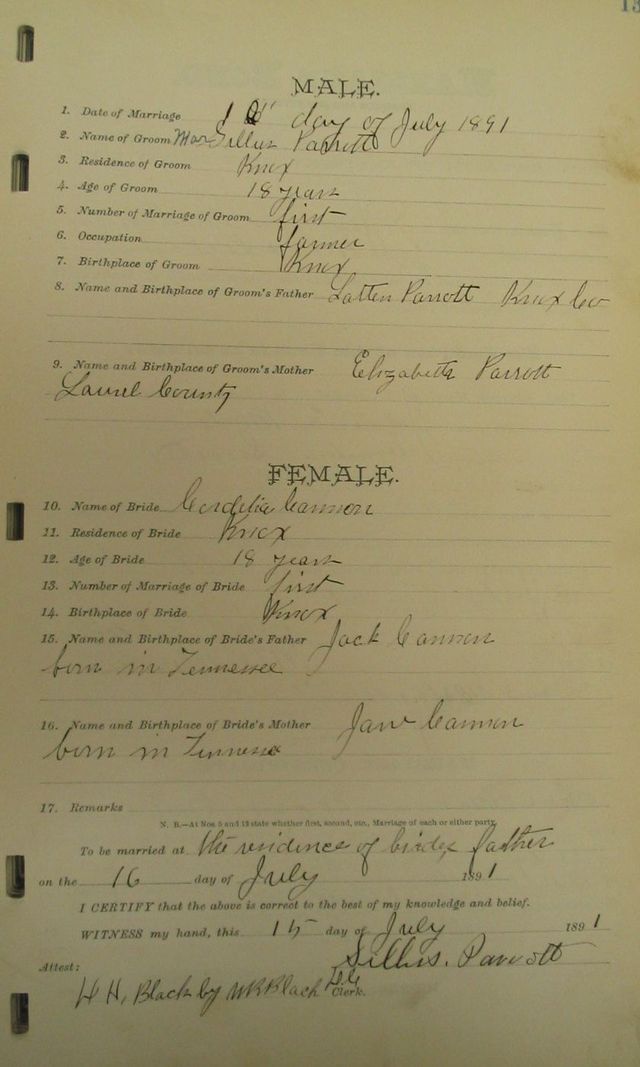 13
MALE.
1. Date of Marriage 16" day of July 1891
2. Name of Groom Sillus Parrott
3. Residence of Groom Knox
4. Age of Groom 18 years
5. Number of Marriage of Groom first
6. Occupation farmer
7. Birthplace of Groom Knox
8. Name and Birthplace of Groom's Father Parrott Knox Co
9. Name and Birthplace of Groom's Mother Elizabeth Parrott
Laurel County
FEMALE.
10. Name of Bride Cordelia Cannon
11. Residence of Bride Knox
12. Age of Bride 18 years
13. Number of Marriage of Bride first
14. Birthplace of Bride Knox
15. Name and Birthplace of Bride's Father Jack Cannon
born in Tennessee
16. Name and Birthplace of Bride's Mother Jane Cannon
born in Tennessee
17. Remarks
N. B.—At Nos. 5 and 13 state whether first, second, etc., Marriage of each or either party.
To be married at the residence of brides father
on the 16 day of July 1891
I CERTIFY that the above is correct to the best of my knowledge and belief.
WITNESS my hand, this 15 day of July 1891
Sillus. Parrott
Attest:
H. H. Black by W R Black D.C. Clerk.